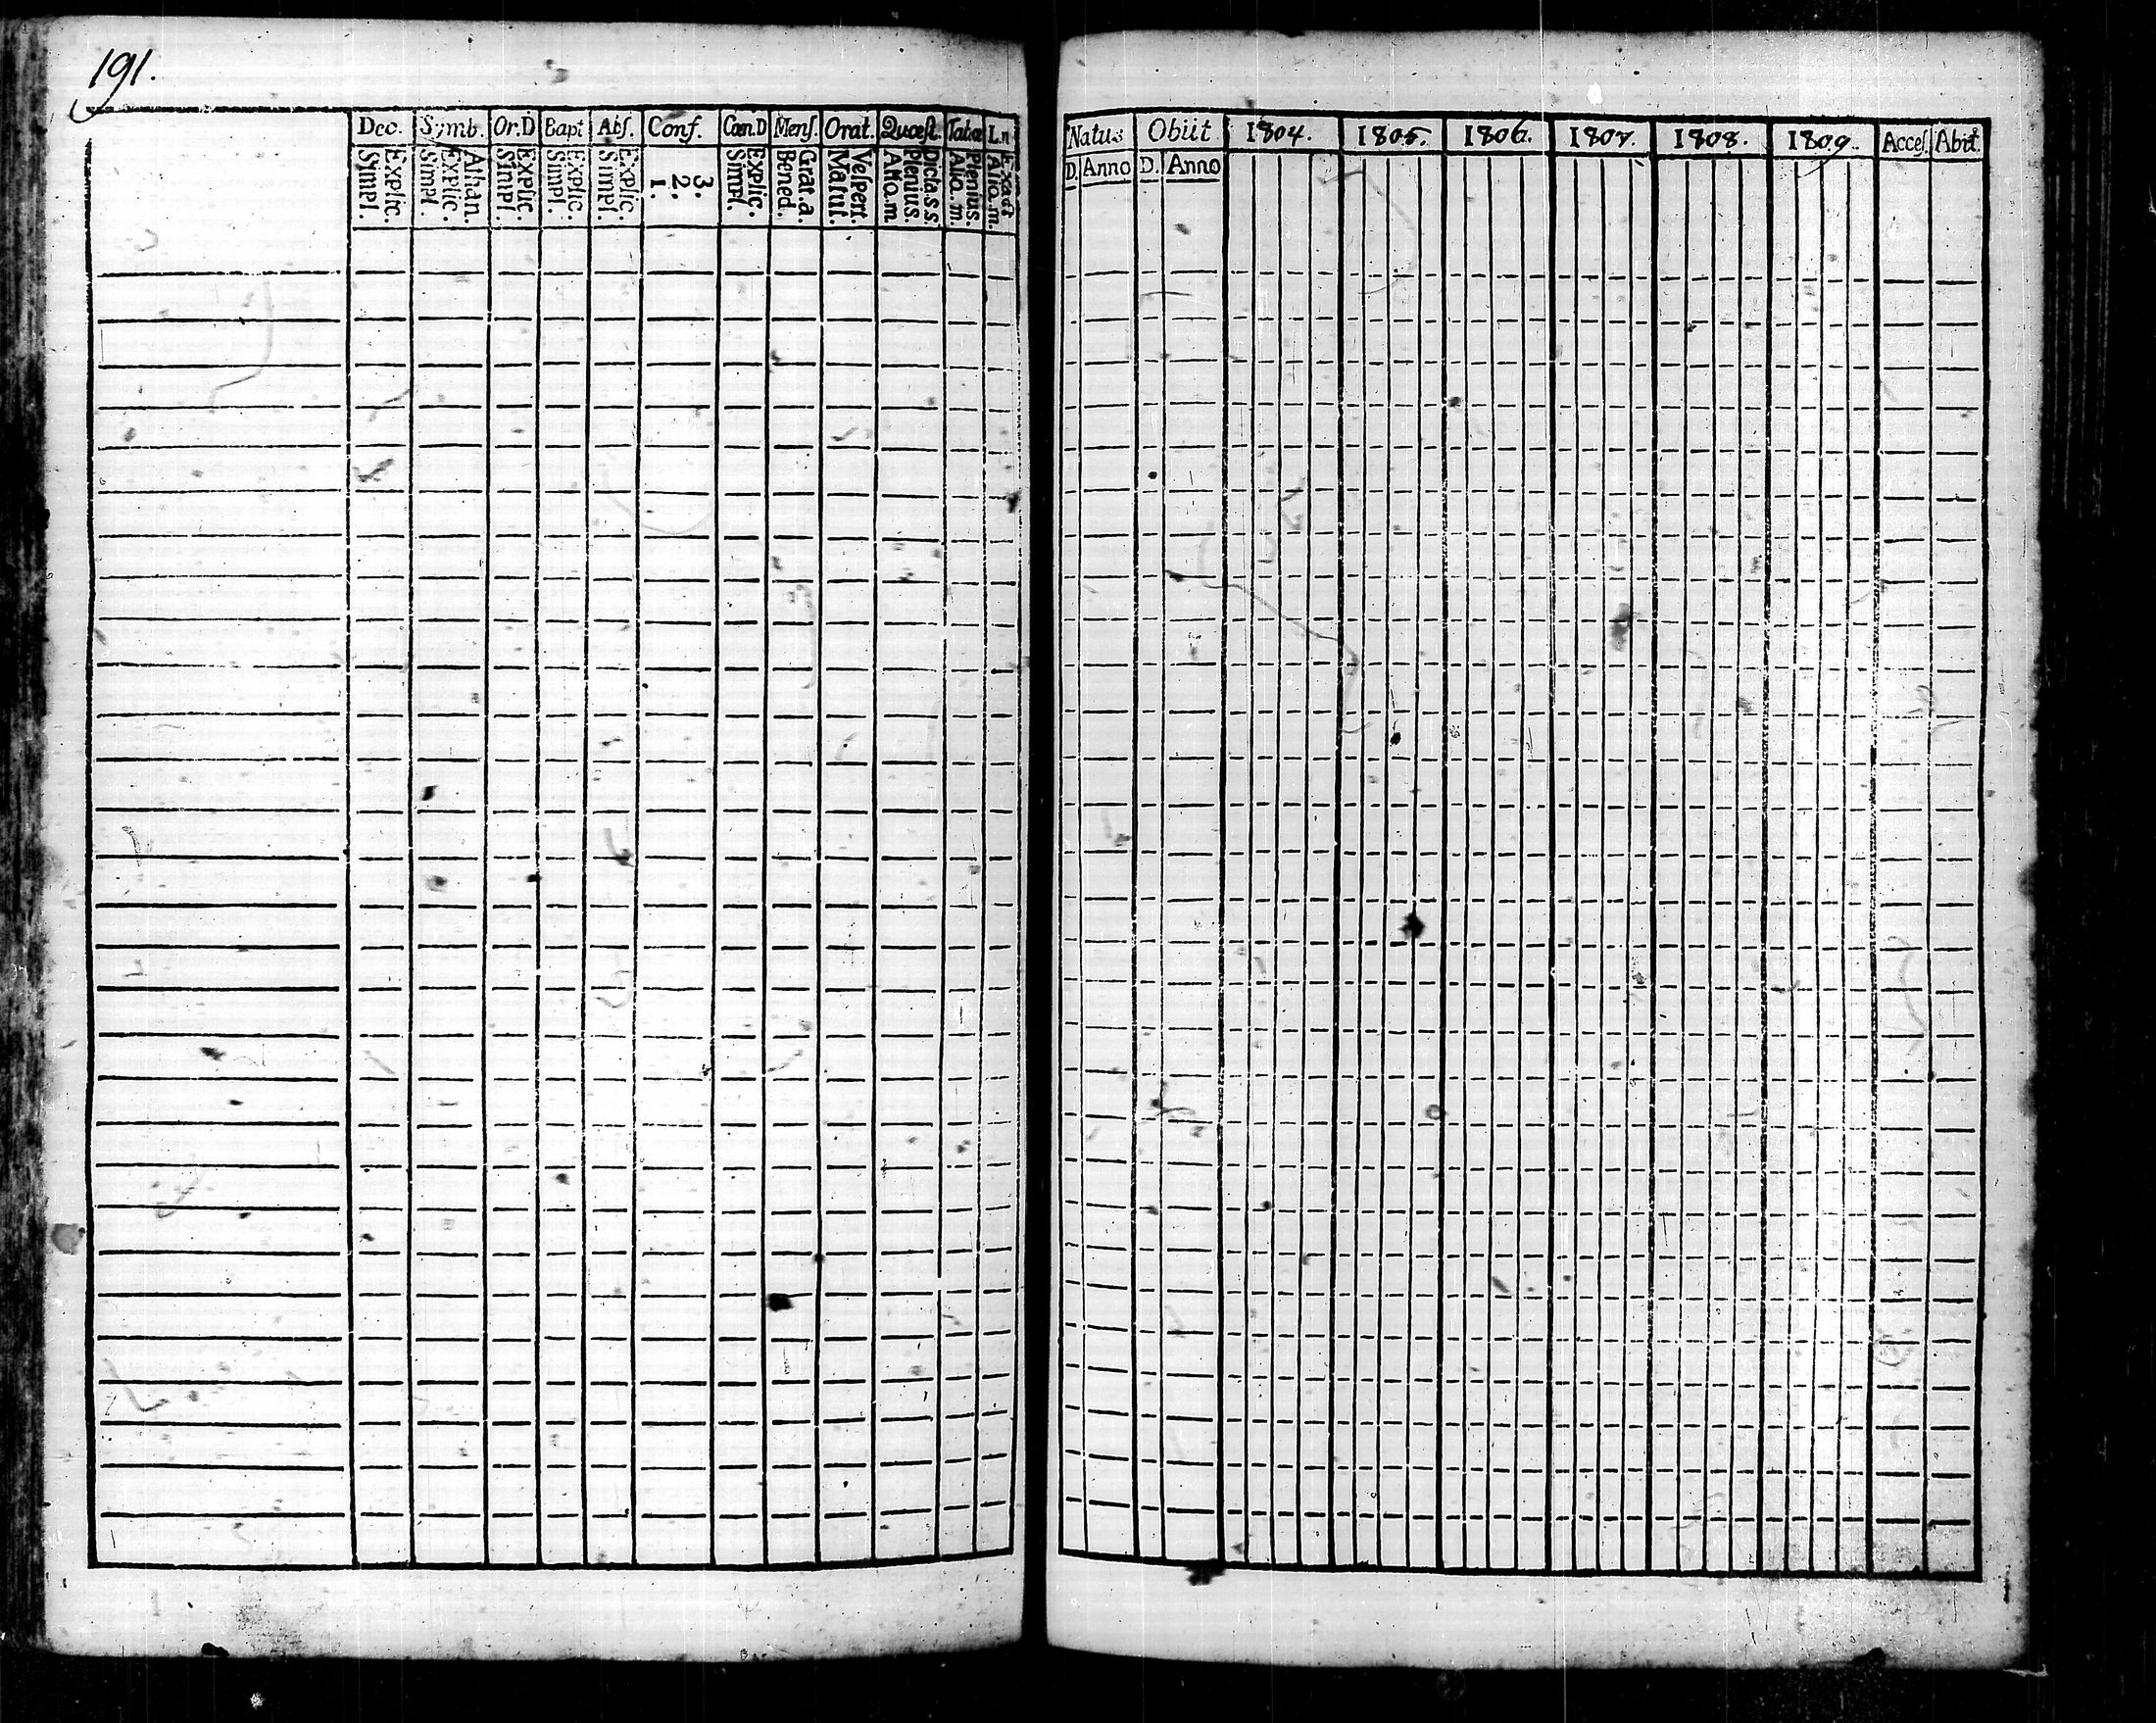 191.
Dec. Symb. Or.D Bapt Abſ. Conf. Cœn.D Menſ. Orat. Quœſt. Tabœ L.n
Explic. Simpl. Athan. Explic. Simpl. Explic. Simpl. Explic. Simpl. Explic. Simpl. 3. 2. 1. Explic. Simpl. Grat.a. Bened. Veſpert. Matut. Dicta.s.s. Plenius. Aliq.m Plenius. Aliq.m. Exact Aliq.m.
Natus Obiit 1804. 1805. 1806. 1807. 1808. 1809. Acceſ. Abit.
D. Anno D. Anno